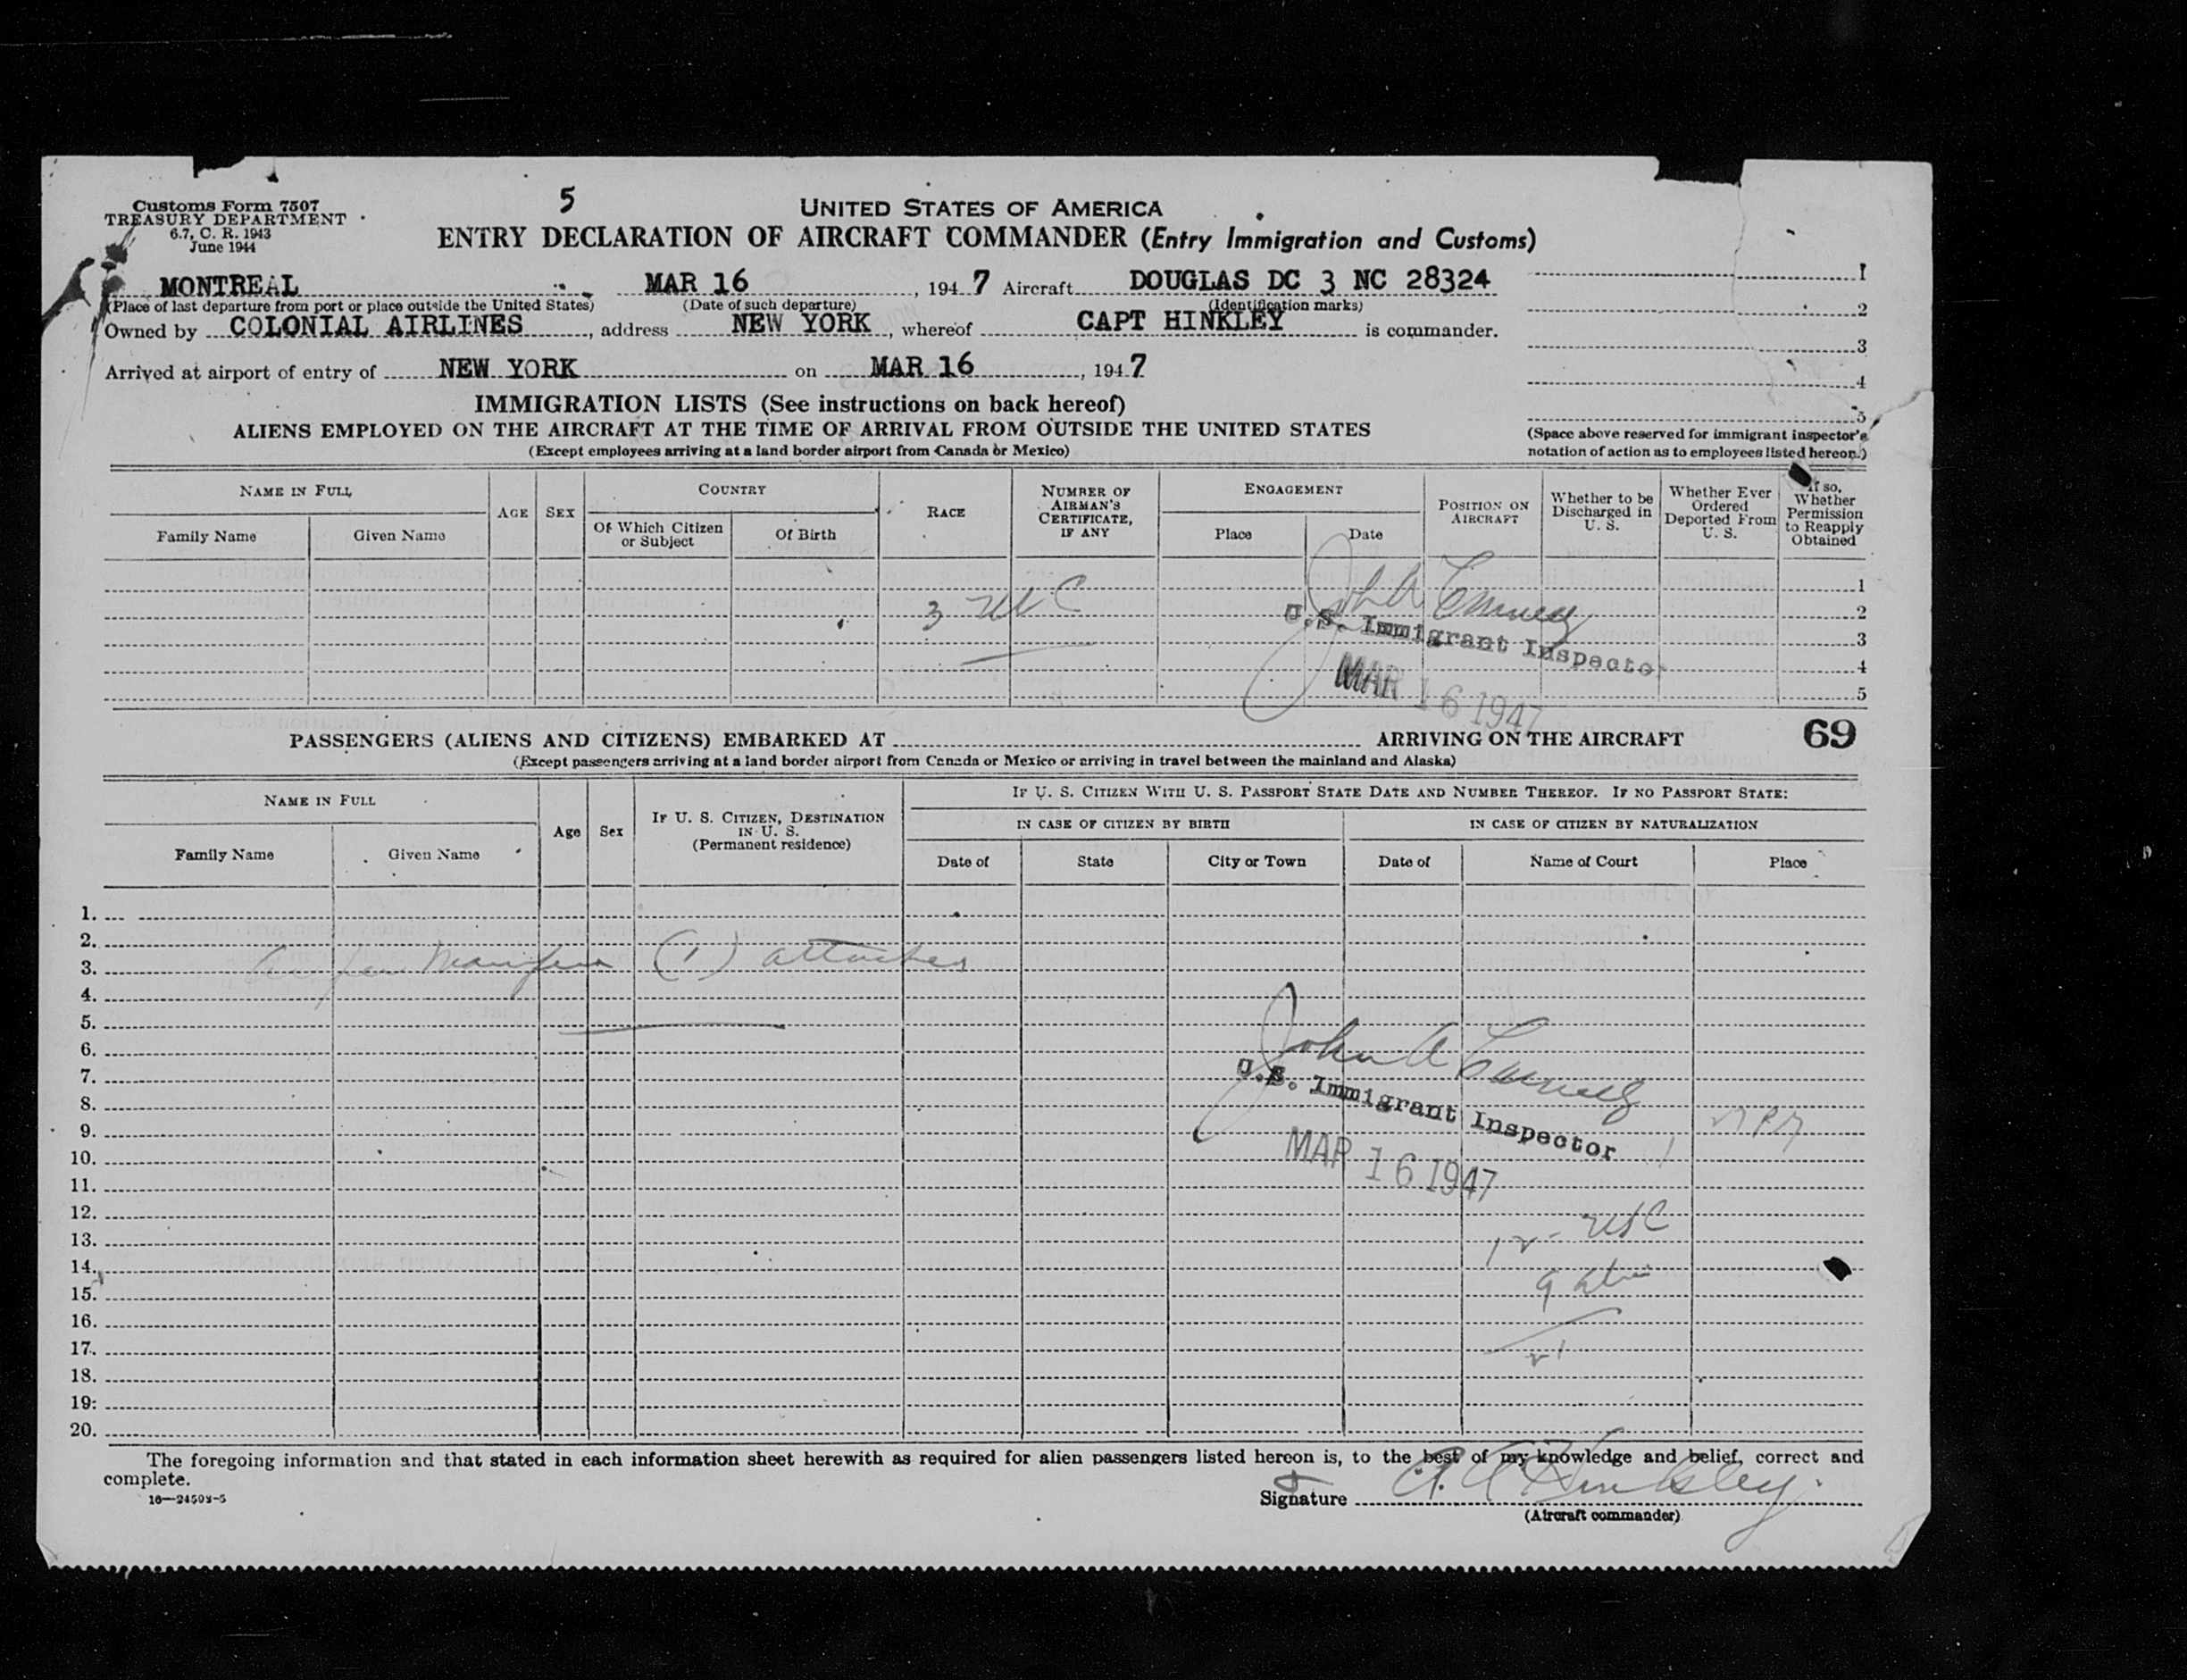 Customs Form 7507
TREASURY DEPARTMENT
6.7, C. R. 1943
June 1944
5
UNITED STATES OF AMERICA
ENTRY DECLARATION OF AIRCRAFT COMMANDER (Entry Immigration and Customs)
MONTREAL , MAR 16 , 1947 Aircraft DOUGLAS DC 3 NC 28324
(Place of last departure from port or place outside the United States) (Date of such departure) (Identification marks)
Owned by COLONIAL AIRLINES , address NEW YORK , whereof CAPT HINKLEY is commander.
Arrived at airport of entry of NEW YORK on MAR 16 , 1947
1
2
3
4
5
(Space above reserved for immigrant inspector's
notation of action as to employees listed hereon.)
IMMIGRATION LISTS (See instructions on back hereof)
ALIENS EMPLOYED ON THE AIRCRAFT AT THE TIME OF ARRIVAL FROM OUTSIDE THE UNITED STATES
(Except employees arriving at a land border airport from Canada or Mexico)
NAME IN FULL
Family Name
Given Name
AGE
SEX
COUNTRY
Of Which Citizen
or Subject
Of Birth
RACE
NUMBER OF
AIRMAN'S
CERTIFICATE,
IF ANY
ENGAGEMENT
Place
Date
POSITION ON
AIRCRAFT
Whether to be
Discharged in
U. S.
Whether Ever
Ordered
Deported From
U. S.
If so,
Whether
Permission
to Reapply
Obtained
1
2
3
4
5
3 USC
John A
U.S. Immigrant Inspector
MAR 16 1947
PASSENGERS (ALIENS AND CITIZENS) EMBARKED AT ARRIVING ON THE AIRCRAFT
69
(Except passengers arriving at a land border airport from Canada or Mexico or arriving in travel between the mainland and Alaska)
NAME IN FULL
Family Name
Given Name
Age
Sex
IF U. S. CITIZEN, DESTINATION
IN U. S.
(Permanent residence)
IF U. S. CITIZEN WITH U. S. PASSPORT STATE DATE AND NUMBER THEREOF. IF NO PASSPORT STATE:
IN CASE OF CITIZEN BY BIRTH
IN CASE OF CITIZEN BY NATURALIZATION
Date of
State
City or Town
Date of
Name of Court
Place
1.
2.
3.
4.
5.
6.
7.
8.
9.
10.
11.
12.
13.
14.
15.
16.
17.
18.
19.
20.
as per Manifest (1) attached
John A
U.S. Immigrant Inspector
MAR 16 1947
12 - USC
9
21
The foregoing information and that stated in each information sheet herewith as required for alien passengers listed hereon is, to the best of my knowledge and belief, correct and
complete.
16—24503-5
Signature Hinkley
(Aircraft commander)